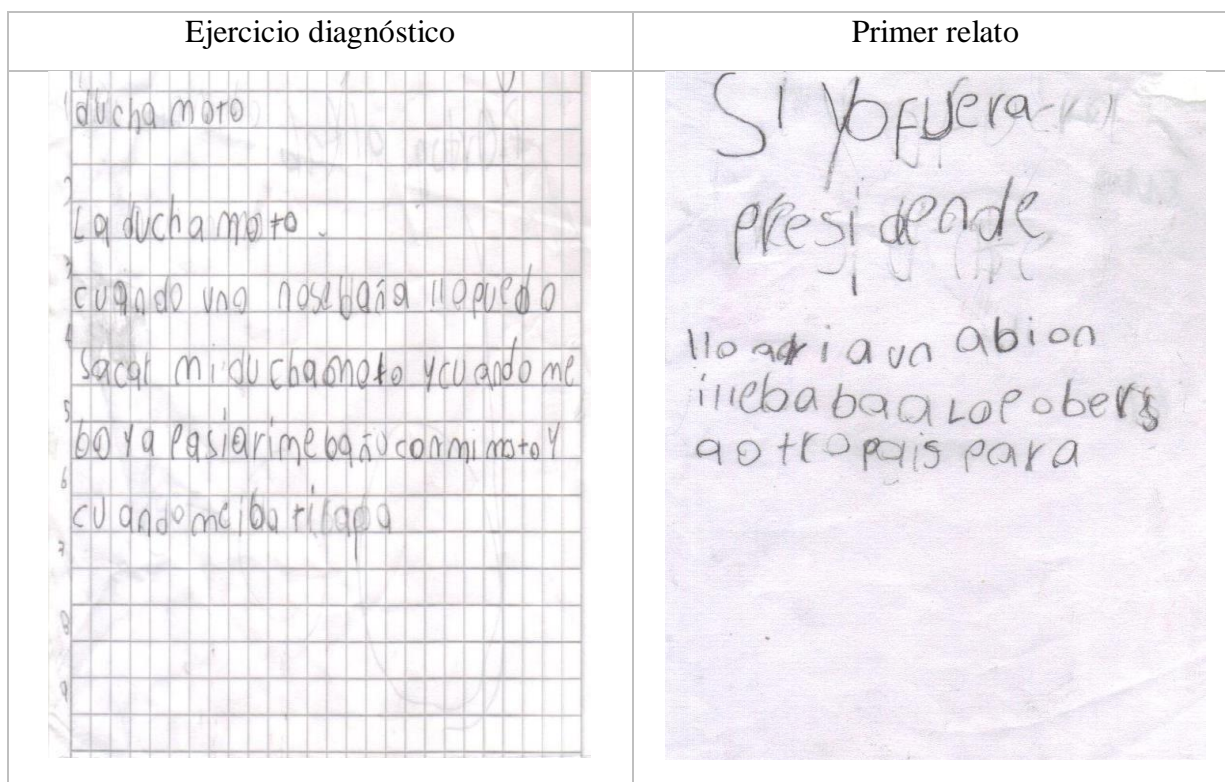 Ejercicio diagnóstico
Primer relato
ducha moto
La ducha moto.
cuando uno nosebaña llopuedo
sacar mi duchamoto ycuando me
boya pasiarimebaño conmimotoY
cuando meiba
Si Yo Fuera
Presidende
llo aria un abion
illebabaa Lo Pobers
aotro pais para